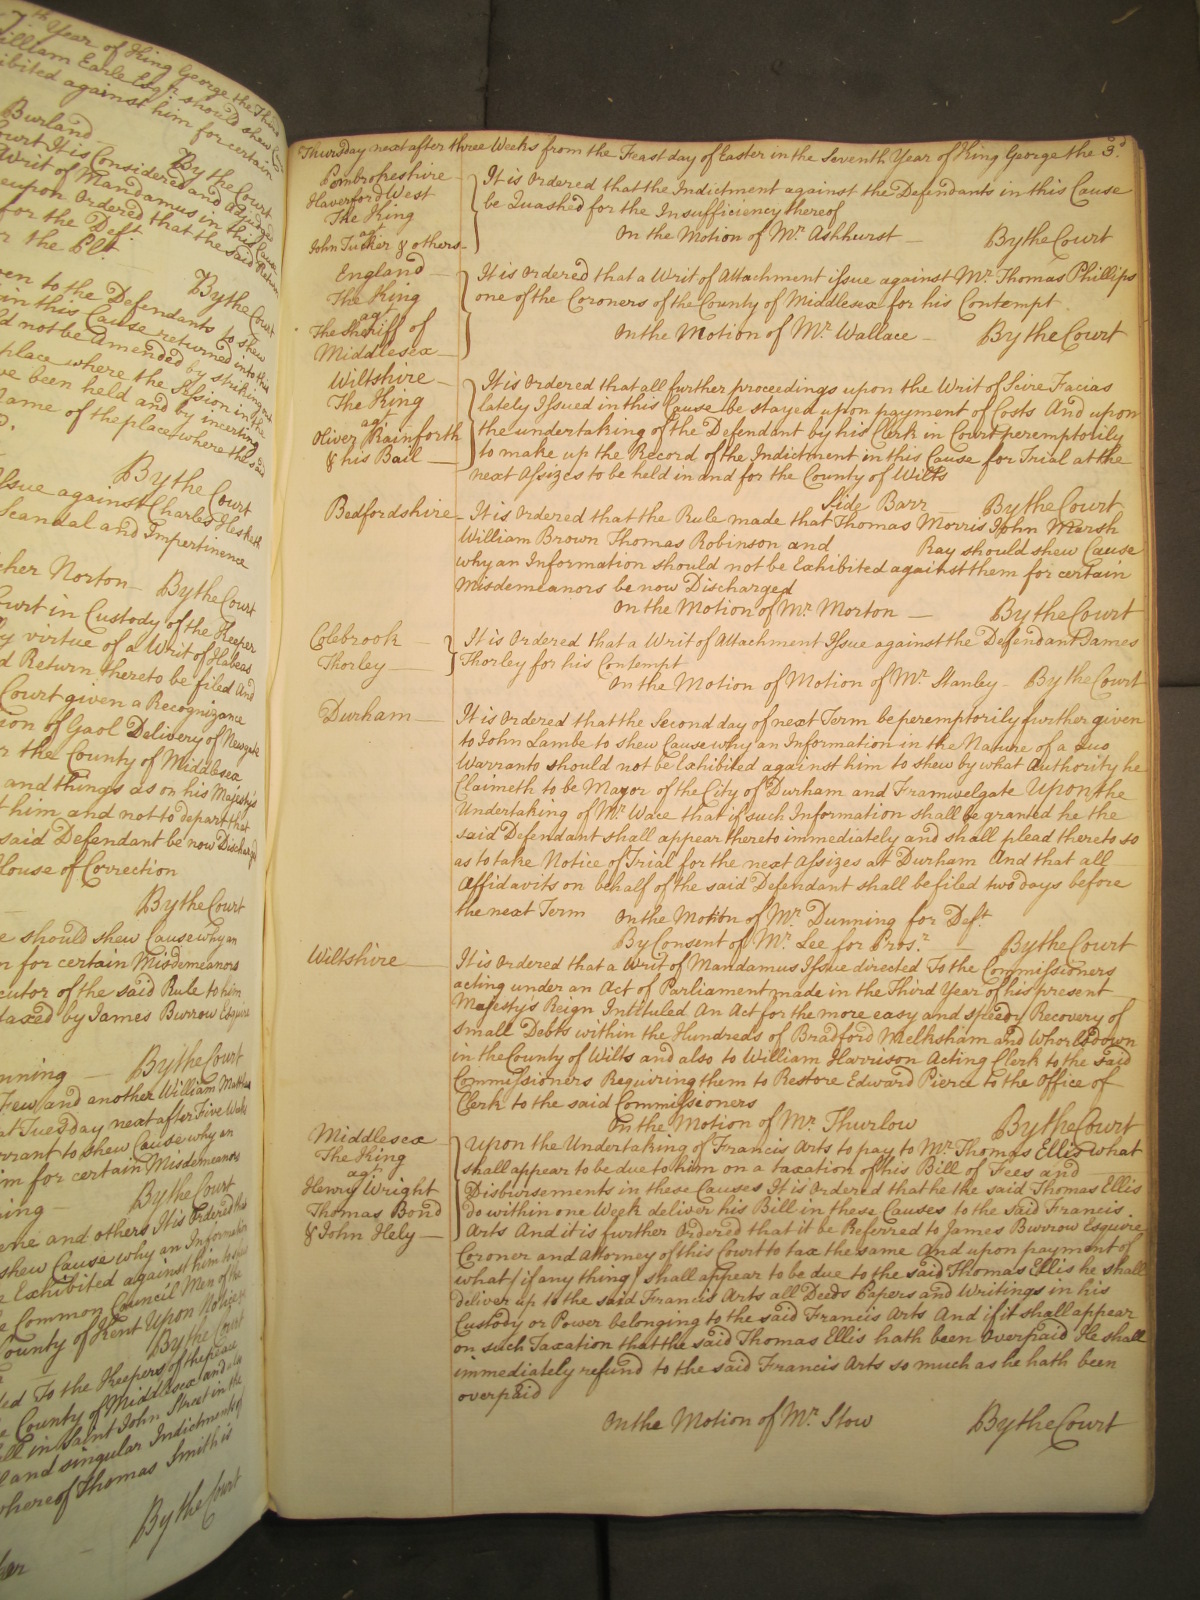 7th Year of King George the Third
William Earle Esqr. should shew
ibited against him for certain
Burland
By the Court
Court It is Considered and Adjudged
Writ of Mandamus in this Cause
eupon Ordered that the said Return
for the Deft.
r the Plt.
By the Court
en to the Defendants to shew
in this Cause returned into this
d not be Amended by striking out
place where the Session in the
ve been held and by inserting
Name of the place where the said
By the Court
Issue against Charles Hesketh
Scandal and Impertinence
cher Norton By the Court
ourt in Custody of the Keeper
y virtue of a Writ of Habeas
d Return thereto be filed And
Court given a Recognizance
ion of Gaol Delivery of Newgate
r the County of Middlesex
and things as on his Majesty's
t him and not to depart that
said Defendant be now Discharged
House of Correction
By the Court
e should shew Cause why an
n for certain Misdemeanors
cutor of the said Rule to him
taxed by James Burrow Esquire
nning By the Court
Few and another William Matthew
at Tuesday next after Five Weeks
rrant to shew Cause why an
im for certain Misdemeanors
ing By the Court
ane and others It is Ordered that
shew Cause why an Information
e Exhibited against him to shew
e Common Council Men of the
County of Kent Upon Notice
By the Court
ted To the Keepers of the peace
e County of Middlesex and also
all in Saint John Street in the
l and singular Indictments of
whereof Thomas Smith is
By the Court
Thursday next after three Weeks from the Feast day of Easter in the Seventh Year of King George the 3d.
Pembrokeshire
Haverford West
The King
agt
John Tucker & others
It is Ordered that the Indictment against the Defendants in this Cause
be Quashed for the Insufficiency thereof
On the Motion of Mr. Ashhurst By the Court
England
The King
agt
The Sheriff of
Middlesex
It is Ordered that a Writ of Attachment issue against Mr. Thomas Phillips
one of the Coroners of the County of Middlesex for his Contempt
On the Motion of Mr. Wallace By the Court
Wiltshire
The King
agt
Oliver Rainforth
& his Bail
It is Ordered that all further proceedings upon the Writ of Scire Facias
lately Issued in this Cause be stayed upon payment of Costs And upon
the undertaking of the Defendant by his Clerk in Court peremptorily
to make up the Record of the Indictment in this Cause for Trial at the
next Assizes to be held in and for the County of Wilts
Side Barr By the Court
Bedfordshire It is Ordered that the Rule made that Thomas Morris John Marsh
William Brown Thomas Robinson and Ray should shew Cause
why an Information should not be Exhibited against them for certain
Misdemeanors be now Discharged
On the Motion of Mr. Morton By the Court
Colebrook
Thorley
It is Ordered that a Writ of Attachment Issue against the Defendant James
Thorley for his Contempt
On the Motion of Motion of Mr. Stanley By the Court
Durham It is Ordered that the Second day of next Term be peremptorily further given
to John Lambe to shew Cause why an Information in the Nature of a Quo
Warranto should not be Exhibited against him to shew by what Authority he
Claimeth to be Mayor of the City of Durham and Framwelgate Upon the
Undertaking of Mr. Wace that if such Information shall be granted he the
said Defendant shall appear thereto immediately and shall plead thereto so
as to take Notice of Trial for the next Assizes at Durham And that all
Affidavits on behalf of the said Defendant shall be filed two days before
the next Term On the Motion of Mr. Dunning for Deft.
By Consent of Mr. Lee for Prosr. By the Court
Wiltshire It is Ordered that a Writ of Mandamus Issue directed To the Commissioners
acting under an Act of Parliament made in the Third Year of his present
Majesty's Reign Intituled An Act for the more easy and speedy Recovery of
small Debts within the Hundreds of Bradford Melksham and Whorlsdown
in the County of Wilts and also to William Harrison Acting Clerk to the said
Commissioners Requiring them to Restore Edward Pierce to the Office of
Clerk to the said Commissioners
On the Motion of Mr. Thurlow By the Court
Middlesex
The King
agt
Henry Wright
Thomas Bond
& John Hely
Upon the Undertaking of Francis Arts to pay to Mr. Thomas Ellis what
shall appear to be due to him on a taxation of his Bill of Fees and
Disbursements in these Causes It is Ordered that he the said Thomas Ellis
do within one Week deliver his Bill in these Causes to the said Francis
Arts And it is further Ordered that it be Referred to James Burrow Esquire
Coroner and Attorney of this Court to tax the same And upon payment of
what (if any thing) shall appear to be due to the said Thomas Ellis he shall
deliver up to the said Francis Arts all Deeds Papers and Writings in his
Custody or Power belonging to the said Francis Arts And if it shall appear
on such Taxation that the said Thomas Ellis hath been Overpaid He shall
immediately refund to the said Francis Arts so much as he hath been
overpaid
On the Motion of Mr. Stow By the Court